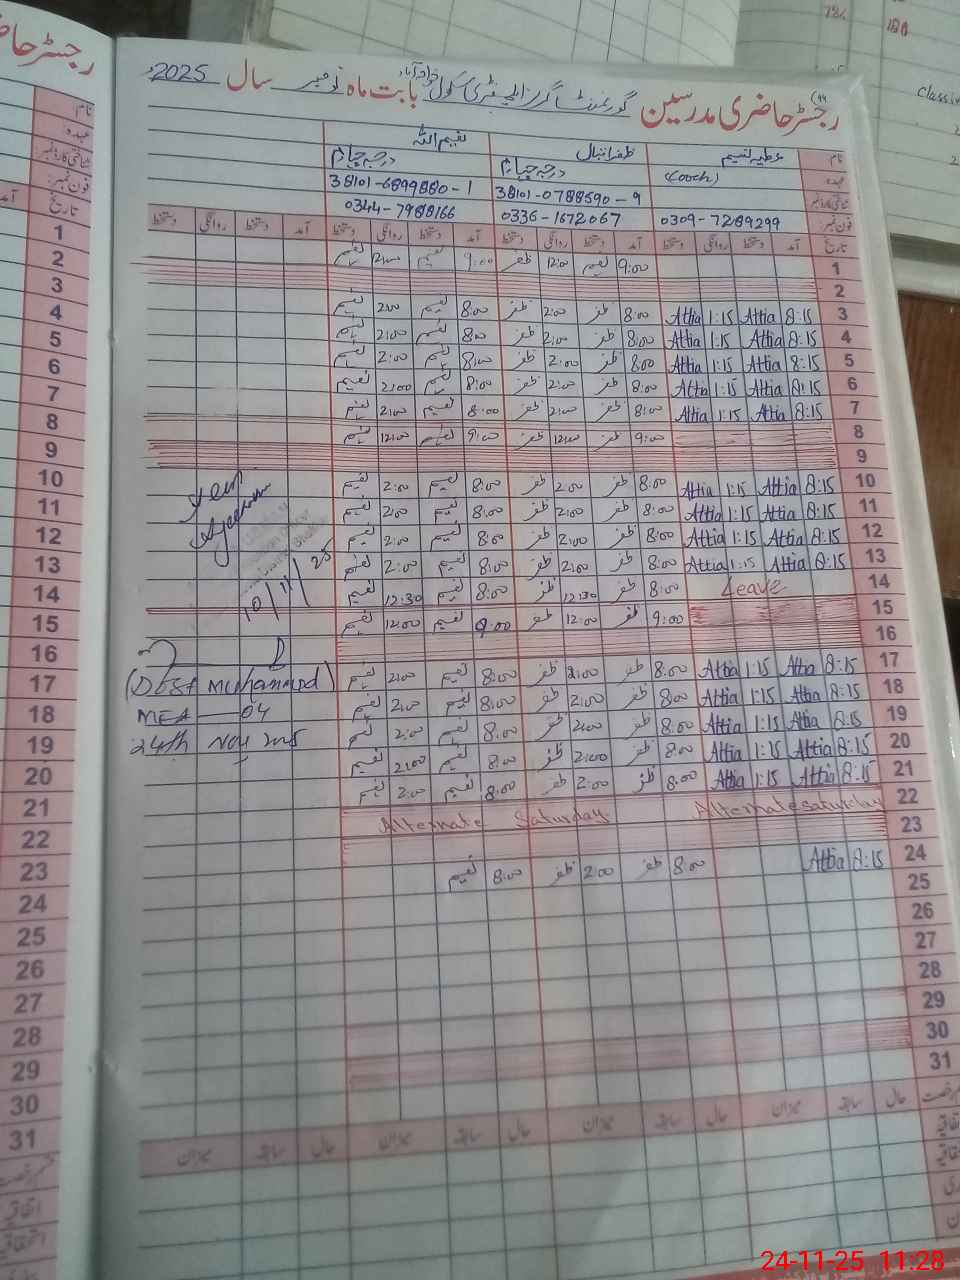 رجسٹر حاضری مدرسین گورنمنٹ گرلز ایلیمنٹری سکول بابت ماہ نومبر سال 2025ء
نام عطیہ نسیم ظفر اقبال نعیم اللہ
عہدہ (Cooch) درجہ چہارم درجہ چہارم
38101-0788590-9 38101-6899880-1
فون نمبر: 0309-7289299 0336-1672067 0344-7988166
تاریخ آمد دستخط روانگی دستخط آمد دستخط روانگی دستخط آمد دستخط روانگی دستخط آمد دستخط روانگی دستخط
1 9:00 نعیم 12:00 ظفر 9:00 نعیم 12:00 نعیم
2
3 8:15 Attia 1:15 Attia 8:00 ظفر 2:00 ظفر 8:00 نعیم 2:00 نعیم
4 8:15 Attia 1:15 Attia 8:00 ظفر 2:00 ظفر 8:00 نعیم 2:00 نعیم
5 8:15 Attia 1:15 Attia 8:00 ظفر 2:00 ظفر 8:00 نعیم 2:00 نعیم
6 8:15 Attia 1:15 Attia 8:00 ظفر 2:00 ظفر 8:00 نعیم 2:00 نعیم
7 8:15 Attia 1:15 Attia 8:00 ظفر 2:00 ظفر 8:00 نعیم 2:00 نعیم
8 9:00 ظفر 12:00 ظفر 9:00 نعیم 12:00 نعیم
9
10 8:15 Attia 1:15 Attia 8:00 ظفر 2:00 ظفر 8:00 نعیم 2:00 نعیم
11 8:15 Attia 1:15 Attia 8:00 ظفر 2:00 ظفر 8:00 نعیم 2:00 نعیم
12 8:15 Attia 1:15 Attia 8:00 ظفر 2:00 ظفر 8:00 نعیم 2:00 نعیم
13 8:15 Attia 1:15 Attia 8:00 ظفر 2:00 ظفر 8:00 نعیم 2:00 نعیم
14 Leave 8:00 ظفر 12:30 ظفر 8:00 نعیم 12:30 نعیم
10/11/25
15 9:00 ظفر 12:00 ظفر 9:00 نعیم 12:00 نعیم
16
17 8:15 Attia 1:15 Attia 8:00 ظفر 2:00 ظفر 8:00 نعیم 2:00 نعیم
(Dost Muhammad)
18 8:15 Attia 1:15 Attia 8:00 ظفر 2:00 ظفر 8:00 نعیم 2:00 نعیم
MEA-04
19 8:15 Attia 1:15 Attia 8:00 ظفر 2:00 ظفر 8:00 نعیم 2:00 نعیم
24th Nov 2025
20 8:15 Attia 1:15 Attia 8:00 ظفر 2:00 ظفر 8:00 نعیم 2:00 نعیم
21 8:15 Attia 1:15 Attia 8:00 ظفر 2:00 ظفر 8:00 نعیم 2:00 نعیم
22 Alternate Saturday Alternate Saturday
23
24 8:15 Attia 8:00 ظفر 2:00 ظفر 8:00 نعیم
25
26
27
28
29
30
31
حال سابقہ میزان حال سابقہ میزان حال سابقہ میزان حال سابقہ میزان
رجسٹر حاضری
نام
عہدہ
شناختی کارڈ نمبر:
فون نمبر:
تاریخ
آمد
1
2
3
4
5
6
7
8
9
10
11
12
13
14
15
16
17
18
19
20
21
22
23
24
25
26
27
28
29
30
31
اتفاقیہ
24-11-25 11:28